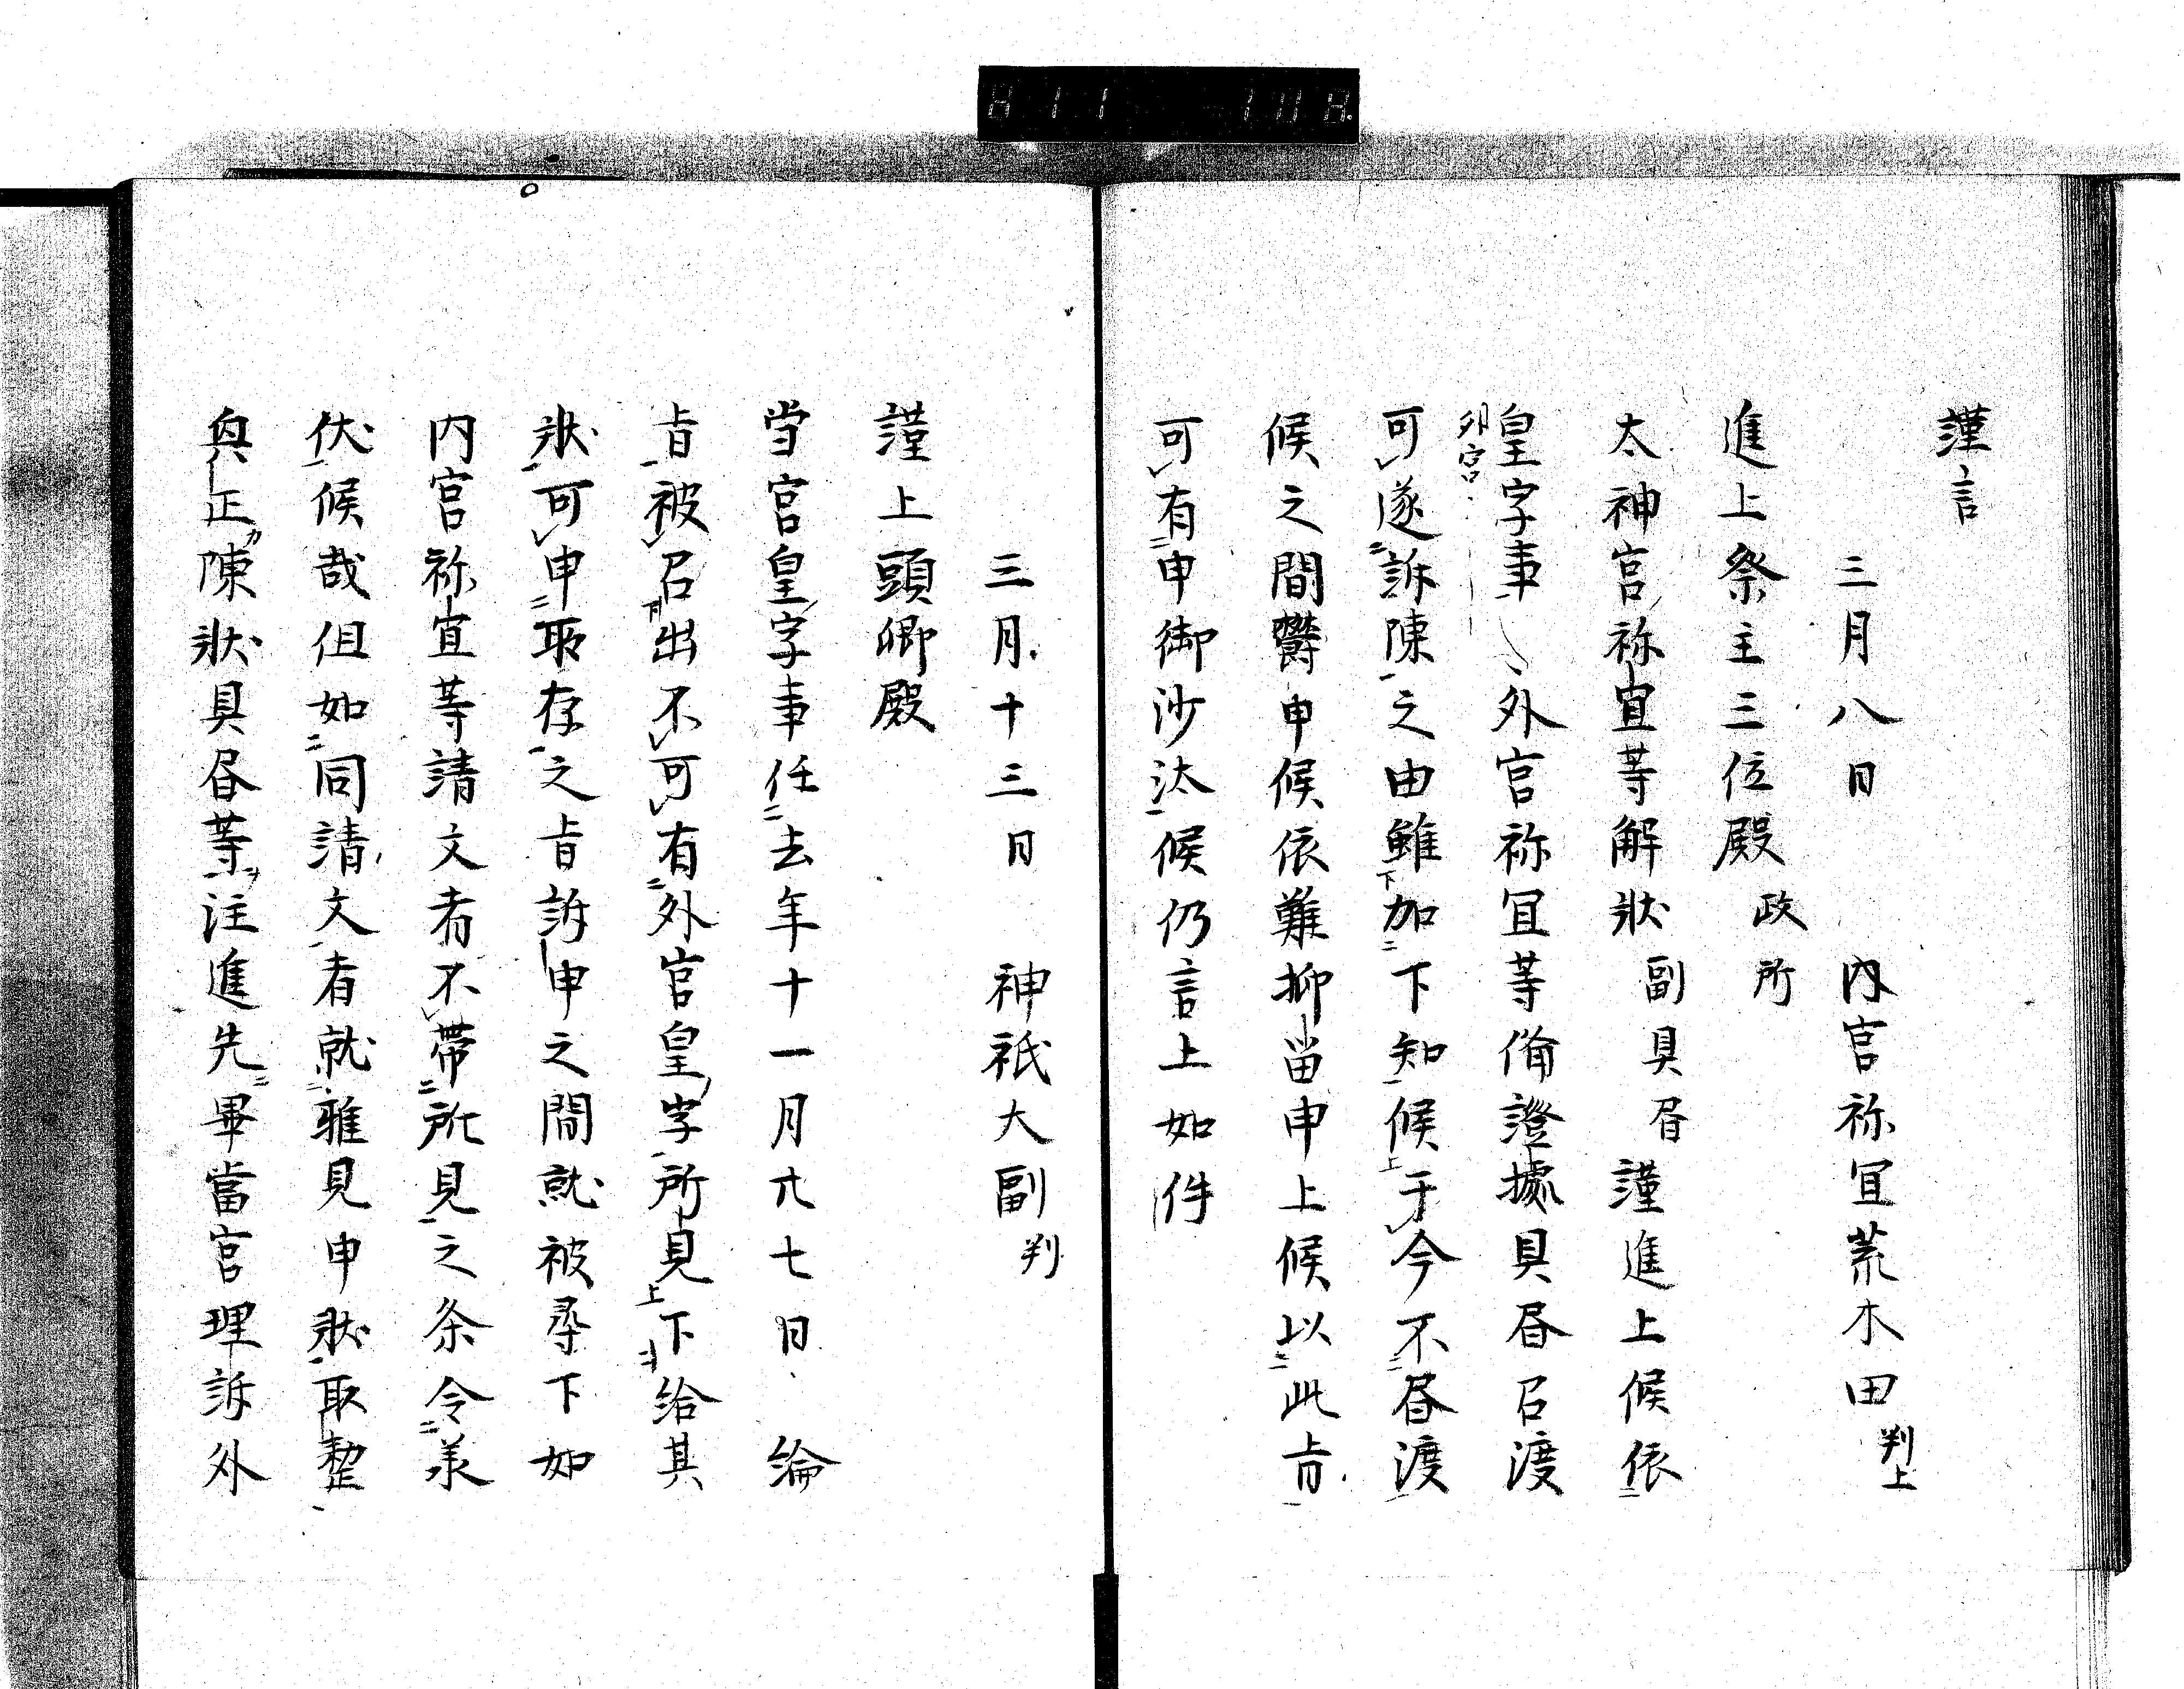 謹言
三月八日　内宮祢宜荒木田判上
進上祭主三位殿政所
太神宮祢宜等解状副具書謹進上候依
皇字事外宮祢宜等備證據具書召渡
外宮
可遂訴陳之由雖加下知候于今不書渡
候之間欝申候依難抑留申上候以此旨
可有申御沙汰候仍言上如件
三月十三日　神祇大副判
謹上頭卿殿
当宮皇字事任去年十一月廿七日　綸
旨被召出不可有外宮皇字所見下給其
状可申取存之旨訴申之間就被尋下如
内宮祢宜等請文者不帯所見之条令承
伏候哉但如同請文者就雅見申状取整
與正陳状具書等注進先畢當宮理訴外
811 108